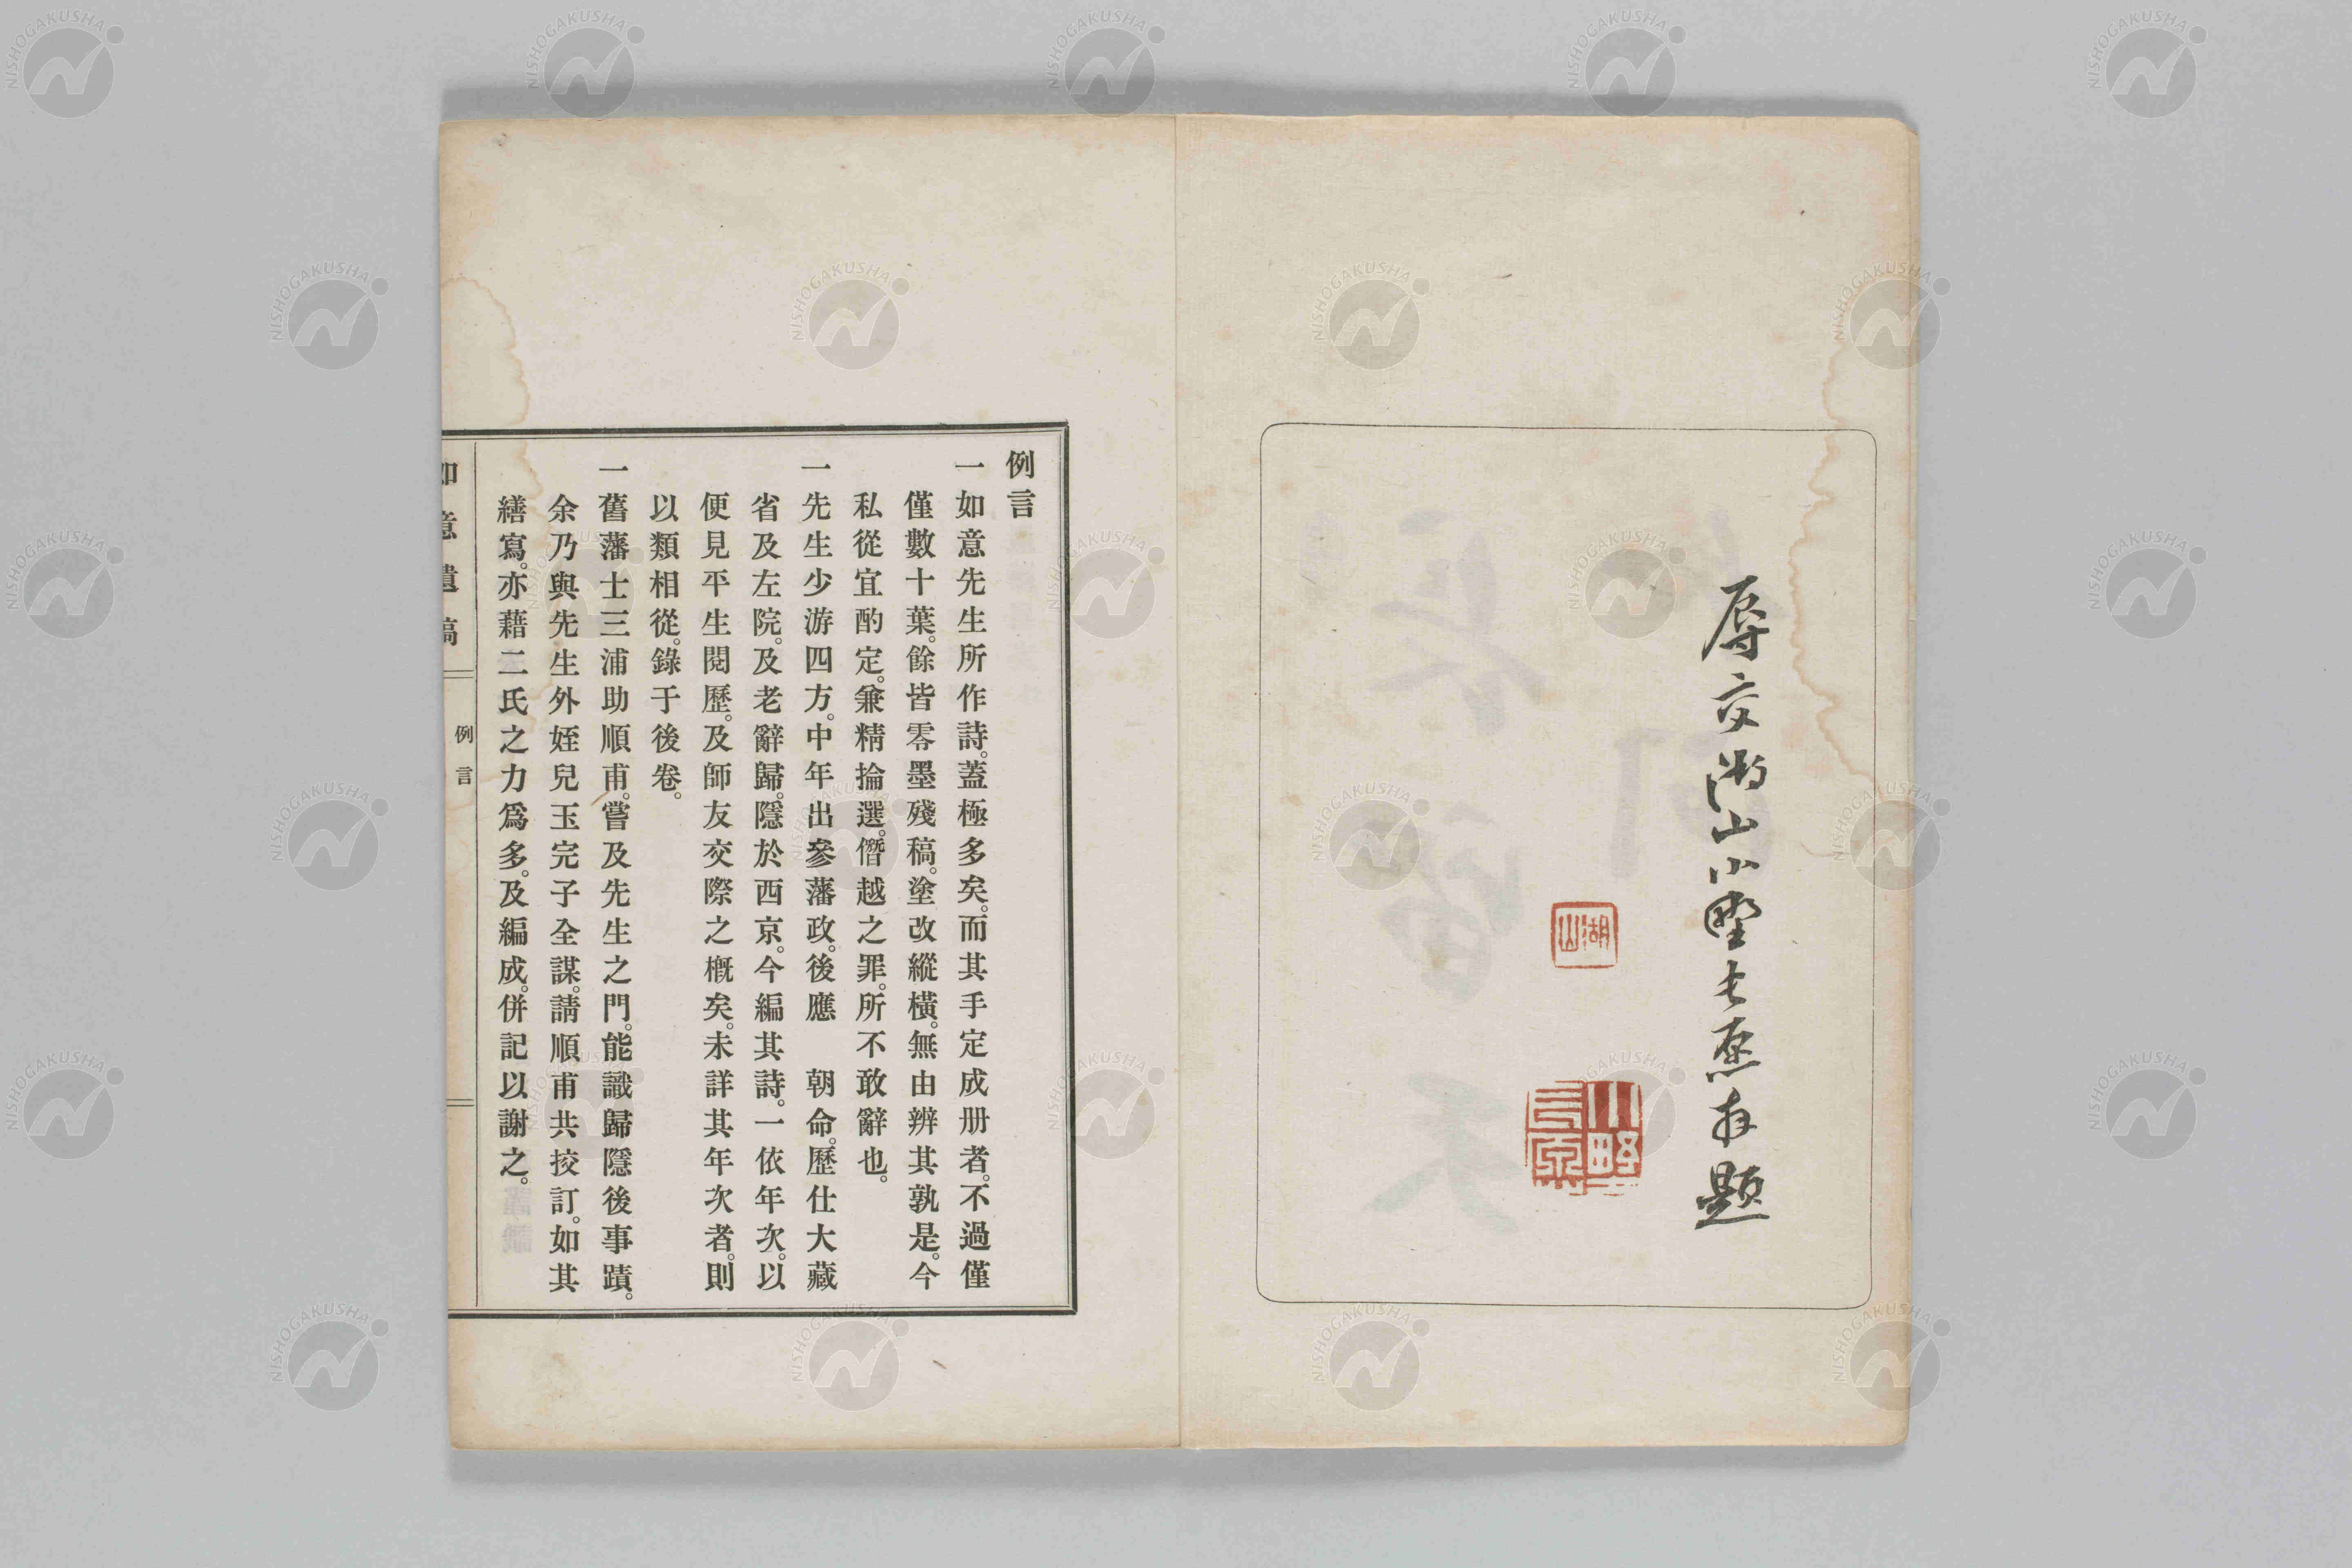 辱交湖山小野長愿拜題
湖山
例言
一如意先生所作詩。蓋極多矣。而其手定成册者。不過僅
僅數十葉。餘皆零墨殘稿。塗改縱橫。無由辨其孰是。今
私從宜酌定。兼精掄選。僭越之罪。所不敢辭也。
一先生少游四方。中年出參藩政。後應　朝命。歷仕大藏
省及左院。及老辭歸。隱於西京。今編其詩。一依年次。以
便見平生閱歷。及師友交際之槪矣。未詳其年次者。則
以類相從。錄于後卷。
一舊藩士三浦助順甫。嘗及先生之門。能識歸隱後事蹟。
余乃與先生外姪兒玉完子全謀。請順甫共挍訂。如其
繕寫。亦藉二氏之力爲多。及編成。併記以謝之。
如意遺稿
例言
NISHOGAKUSHA